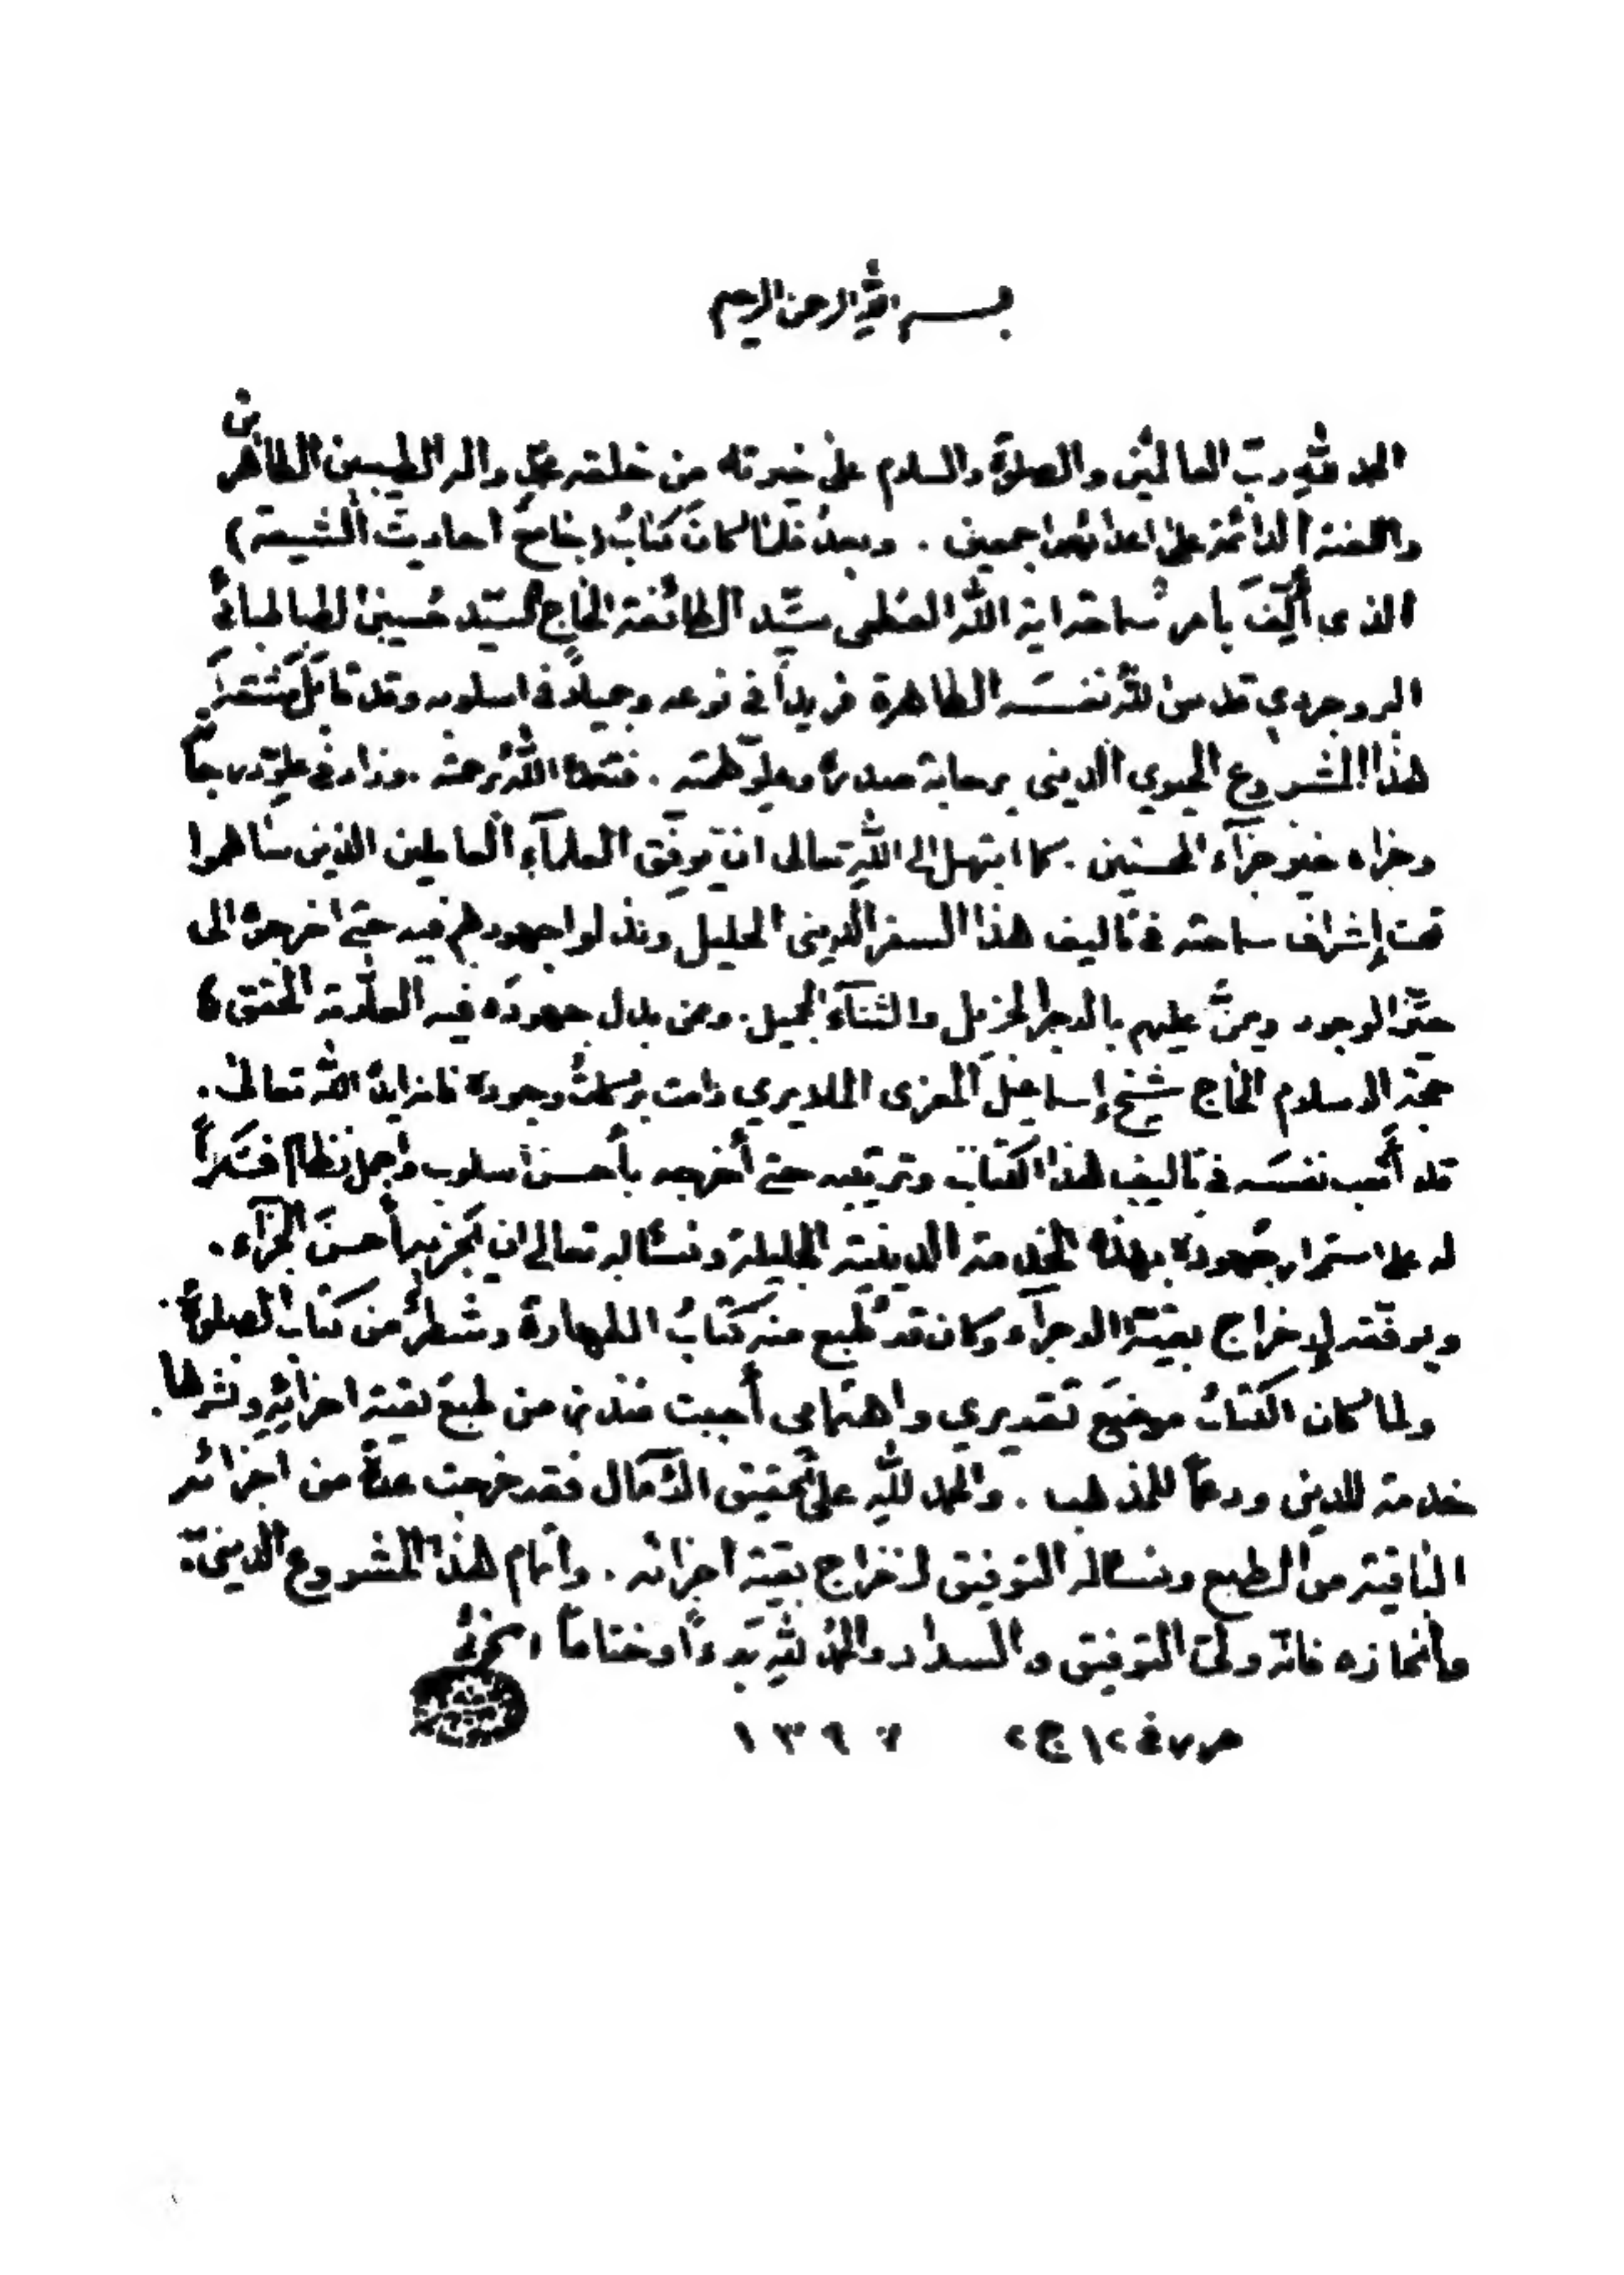 بسم الله الرحمن الرحيم
الحمد لله ربّ العالمين والصلوة والسلام على خيرته من خلقه محمّد واله الطيبين الطاهرين
واللعنة الدائمة على اعدائهم اجمعين . وبعدُ فلمّا كان كتابُ (جامعُ أحاديث الشيعة)
الذى أُلِّفَ بأمر سماحة اية الله العظمى سيّد الطائفة الحاج السيّد حسين الطباطبائي
البروجردي قدس الله نفسَه الطاهرة فريداً في نوعه وجميلاً في اسلوبه وقد
هذا المشروع الحيوي الديني برحابة صدره وعلوّ همّته . فتغمّده اللهُ برحمته .وزاد في علوّ درجاته
وجزاه خير جزآء المحسنين . كما ابتهل إلى الله تعالى ان يوفّق العلمآء العاملين الذين ساهموا
تحت إشراف سماحته في تأليف هذا السفر الديني الجليل وبذلوا جهودهم فيه حتى اخرجوه الى
حيّز الوجود ويمنَّ عليهم بالاجر الجزيل والثنآء الجميل . وممن بذل جهودَه فيه العلّامة المحقق ،
حجة الاسلام الحاج شيخ إسماعيل المعزى الملايري دامت بركاتُ وجوده فانه ايده الله تعالى .
قد أتعب نفسَه في تأليف هذا الكتاب وترتيبه حتى أخرجه بأحسن اسلوب واجمل نظام فشكراً
له على استمرار جهوده بهذه الخدمة الدينية الجليلة ونسئاله تعالى ان يَجزيه أحسنَ الجزآء .
ويوفقه لإخراج بقيّة الاجزآء وكان قد طُبع منه كتابُ الطهارة وشطرٌ من كتاب الصلوة .
ولما كان الكتابُ موضعَ تقديري واهتمامى أحببت طبعَ بقية اجزائه ونشرها .
خدمة للدين ودعماً للمذهب . والحمد لله على تحقيق الآمال فقد خرجت عدةٌ من اجزائه
الباقية من الطبع ونسئاله التوفيق لاخراج بقية اجزائه . وأتمام هذا المشروع الديني .
وأنجازه فانه ولىّ التوفيق والسداد والحمد لله بدءاً وختاماً الخوئي
١٣٩٧